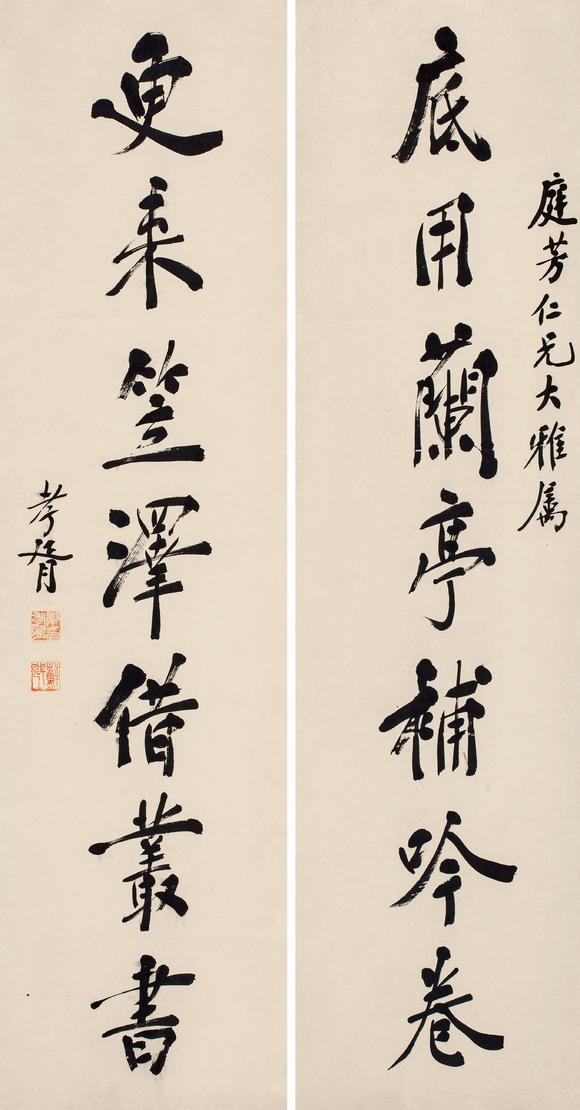 庭芳仁兄大雅属
底用蘭亭補吟卷
更来笠澤借叢書
孝胥